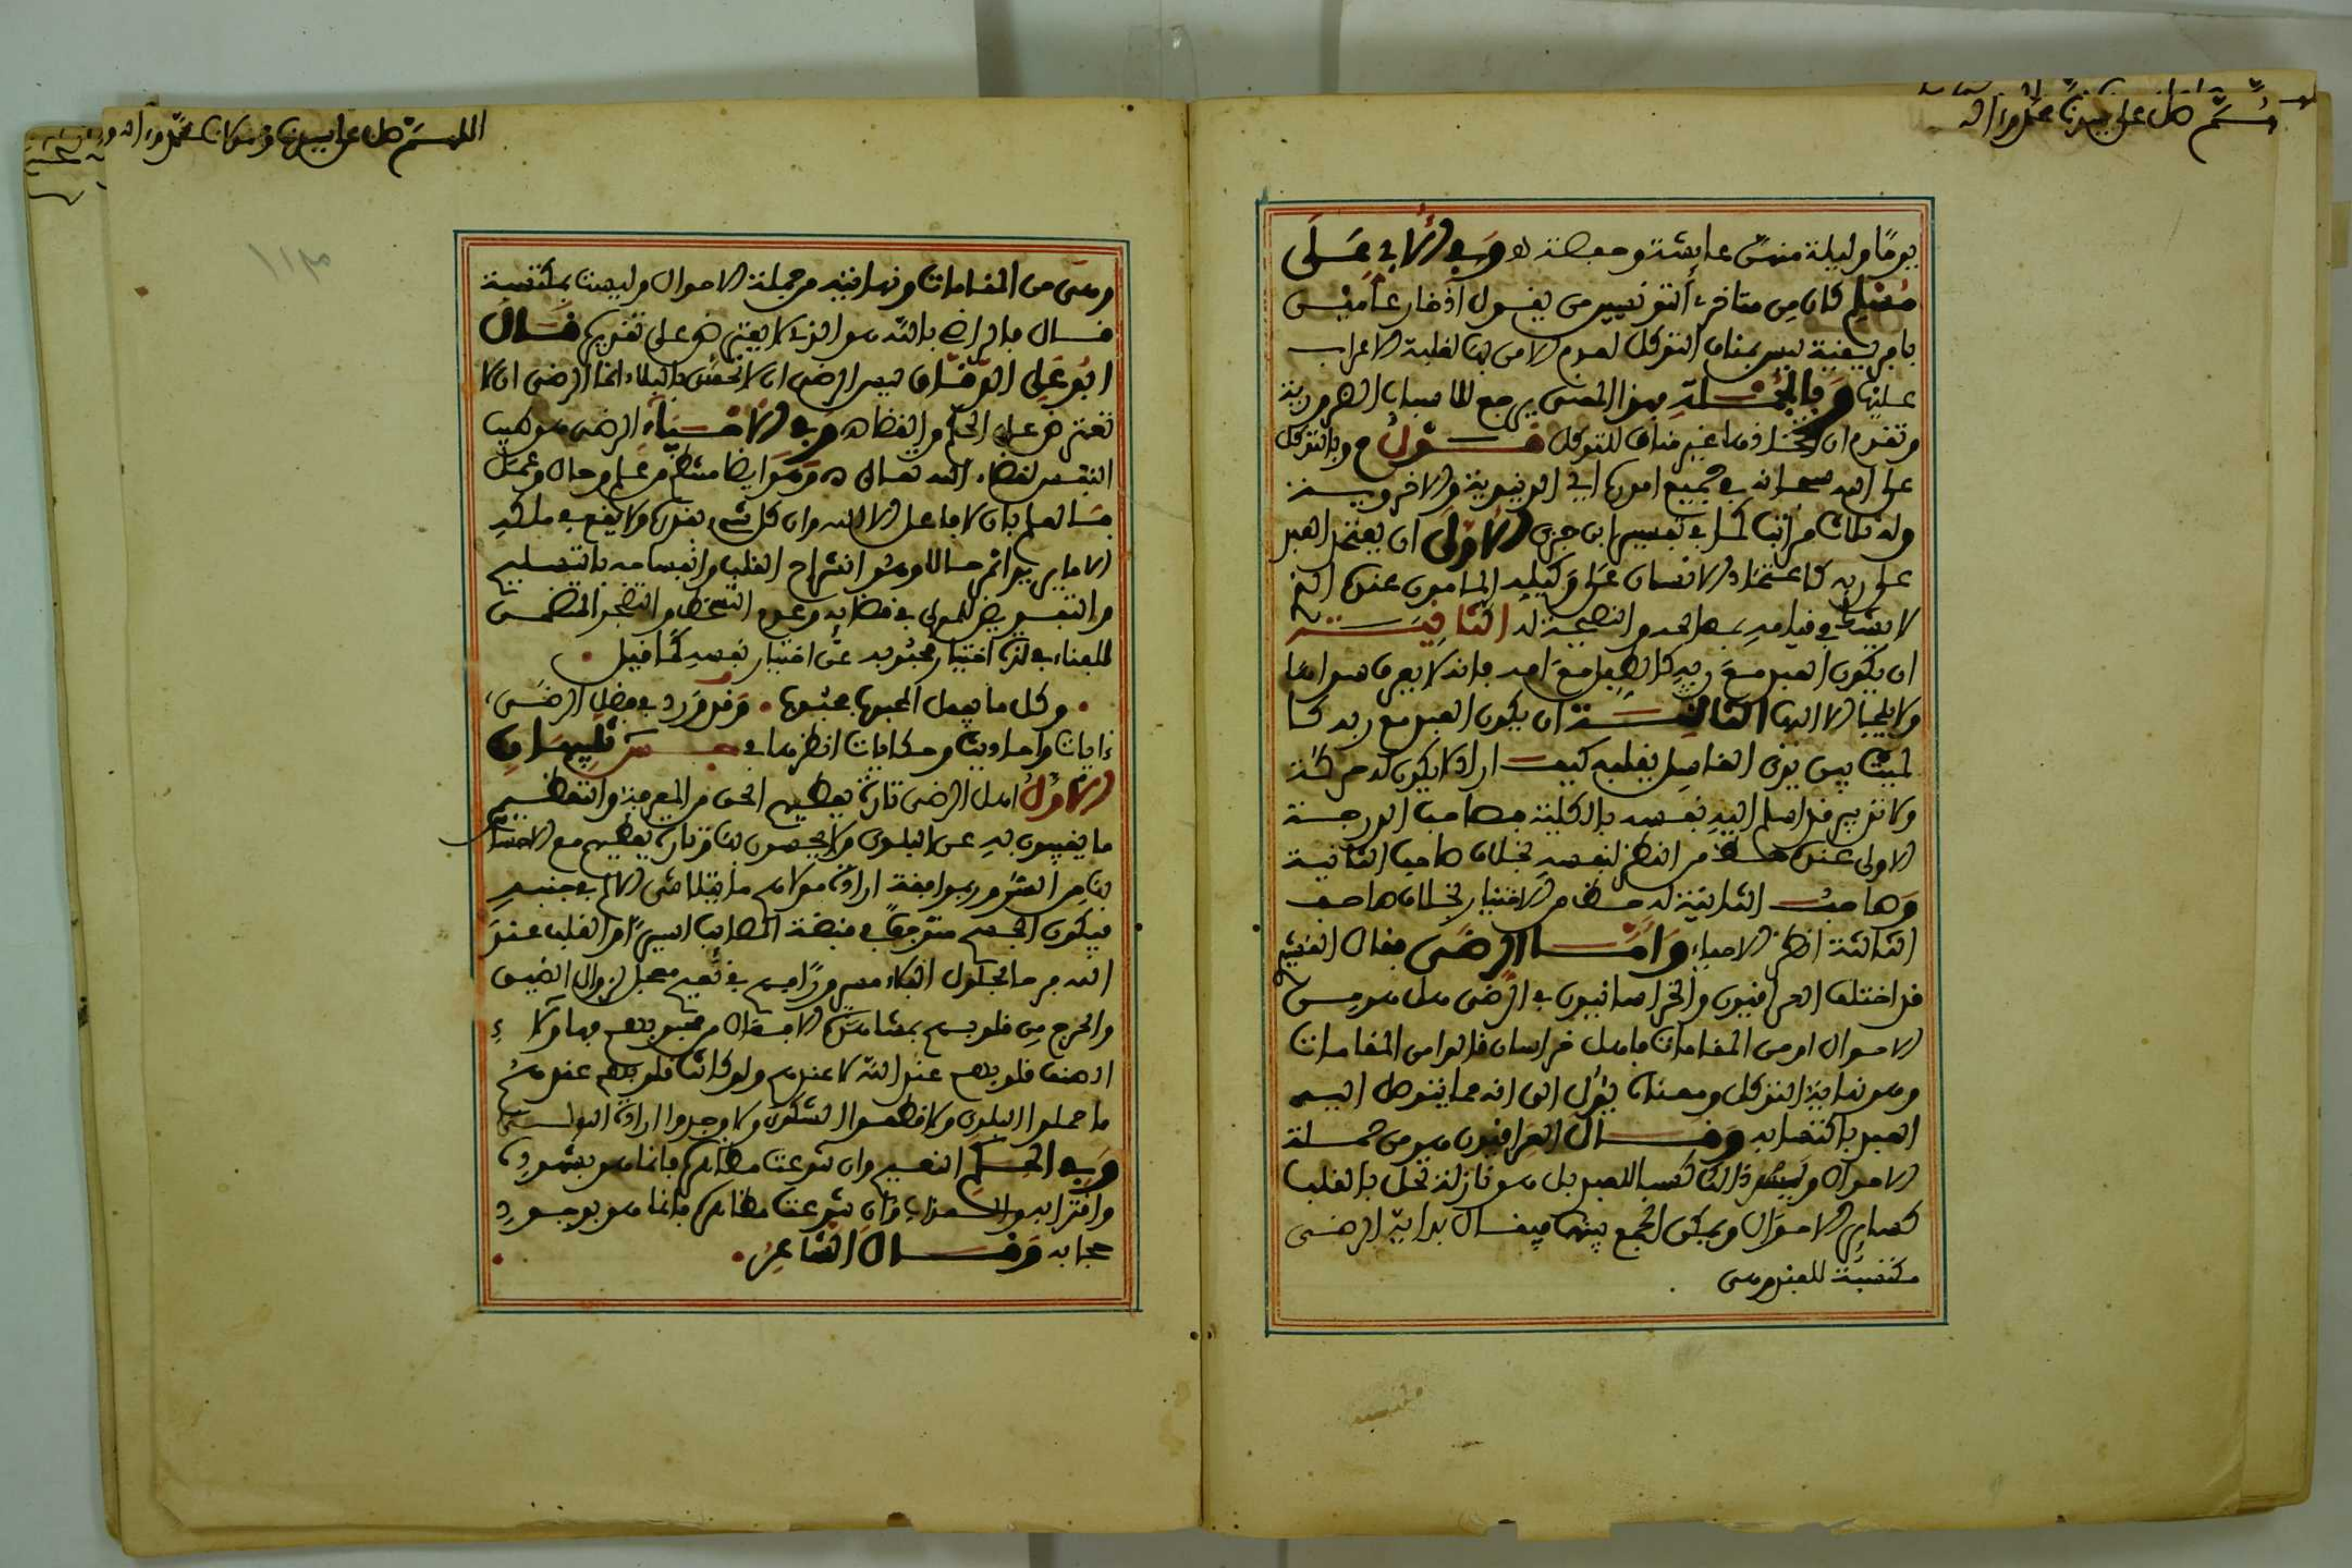 صل على سيدنا محمد وءاله
يوما وليلة منهن عايشة وحفصة اه وفي الأبي على
مسلم كان من متأخري التونسيين من يقول ادخار عامين
بافريقية ليس بمناف التوكل لعدم الامن بها لغلبة الاعراب
عليها وبالجملة فهذا المعنى يرجع للاسباب الضرورية
وتقدم ان اتخاذها غير مناف للتوكل قوله م وبالتوكل
على الله سبحانه في جميع امورها اي الدنيوية والاخروية
وله ثلاث مراتب كما في تفسير ابن جزي الأولى ان يعتمد العبد
على ربه كاعتماد الانسان على وكيله المامون عنده الذي
لا يشك في قيامه بمصالحه والنصيحة له الثانية
ان يكون العبد مع ربه كالطفل مع امه فانه لا يعرف سواها
ولا يلجأ الا اليها الثالثة ان يكون العبد مع ربه كا
لميت بين يدي الغاسل يقلبه كيف اراد لا يكون له حركة
ولا تدبير قد اسلم اليه نفسه بالكلية فصاحب الدرجة
الاولى عنده حظ من النظر لنفسه بخلاف صاحب الثانية
وصاحب الثانية له حظ من الاختيار بخلاف صاحب
الثالثة انظر الاحياء وأما الرضى فقال القشيري
قد اختلف العراقيون والخراسانيون في الرضى هل هو من
الاحوال او من المقامات فاهل خراسان قالوا من المقامات
وهو نهاية التوكل ومعناه يؤل الى انه مما يتوصل اليه
العبد باكتسابه وقال العراقيون هو من جملة
الاحوال وليس ذالك كسبا للعبد بل هو نازلة تحل بالقلب
كساير الاحوال ويمكن الجمع بينهما فيقال بداية الرضى
مكتسبة للعبد وهي
اللهم صل على سيدنا ومولانا محمد وءاله
وهي من المقامات ونهايته من جملة الاحوال وليست بمكتسبة
قال فالراضي بالله هو الذي لا يعترض على تقديره قال
ابو علي الدقاق ليس الرضى ان لا تحس بالبلاء انما الرضى ان لا
تعترض على الحكم والقضاه وفي الاحياء الرضى هو طيب
النفس لقضاء الله تعالى اه وهو ايضا منتظم من علم وحال وعمل
فالعلم بان لا فاعل الا الله وان كل شيء بقدره ولا يقع في ملكه
الا ما يريد اثمر حالا وهو انشراح القلب وانبساطه بالتسليم
والتفويض للمولى في قضايه وعدم التسخط والتضجر المتضمن
للفناء في لذة اختيار محبوبه عن اختيار نفسه كما قيل
وكل ما يفعل المحبوب محبوب وقد ورد في فضل الرضى
ءايات واحاديث وحكايات انظرها في تنبيهان
الأول اهل الرضى تارة يعطيهم الحق من المعرفة والتعظيم
ما يغيبون به عن البلوى ولا يحسون بها وتارة يعطيهم مع الاحساس
بها من السرور بموافقة ارادة مولاهم ما يتلاشى الالم في جنبه
فيكون الجسم متوجعا في قبضة المصايب اسيرا والقلب عند
الله فرحا بحلول البلاء مسرورا فهم في نعيم معجل لزوال الضيق
والحرج من قلوبهم بمشاهدة الافعال من محبوبهم فهاولاء
ادهنت قلوبهم عند الله لا عندهم ولو كانت قلوبهم عندهم
ما حملوا البلوى ولا قطعوا الشكوى ولا وجدوا ارادة المولى
وفي الحكم النعيم وان تنوعت مظاهره فانما هو بشهوده
واقترابه والعذاب وان تنوعت مظاهره فانما هو بوجود
حجابه وقال الشاعر